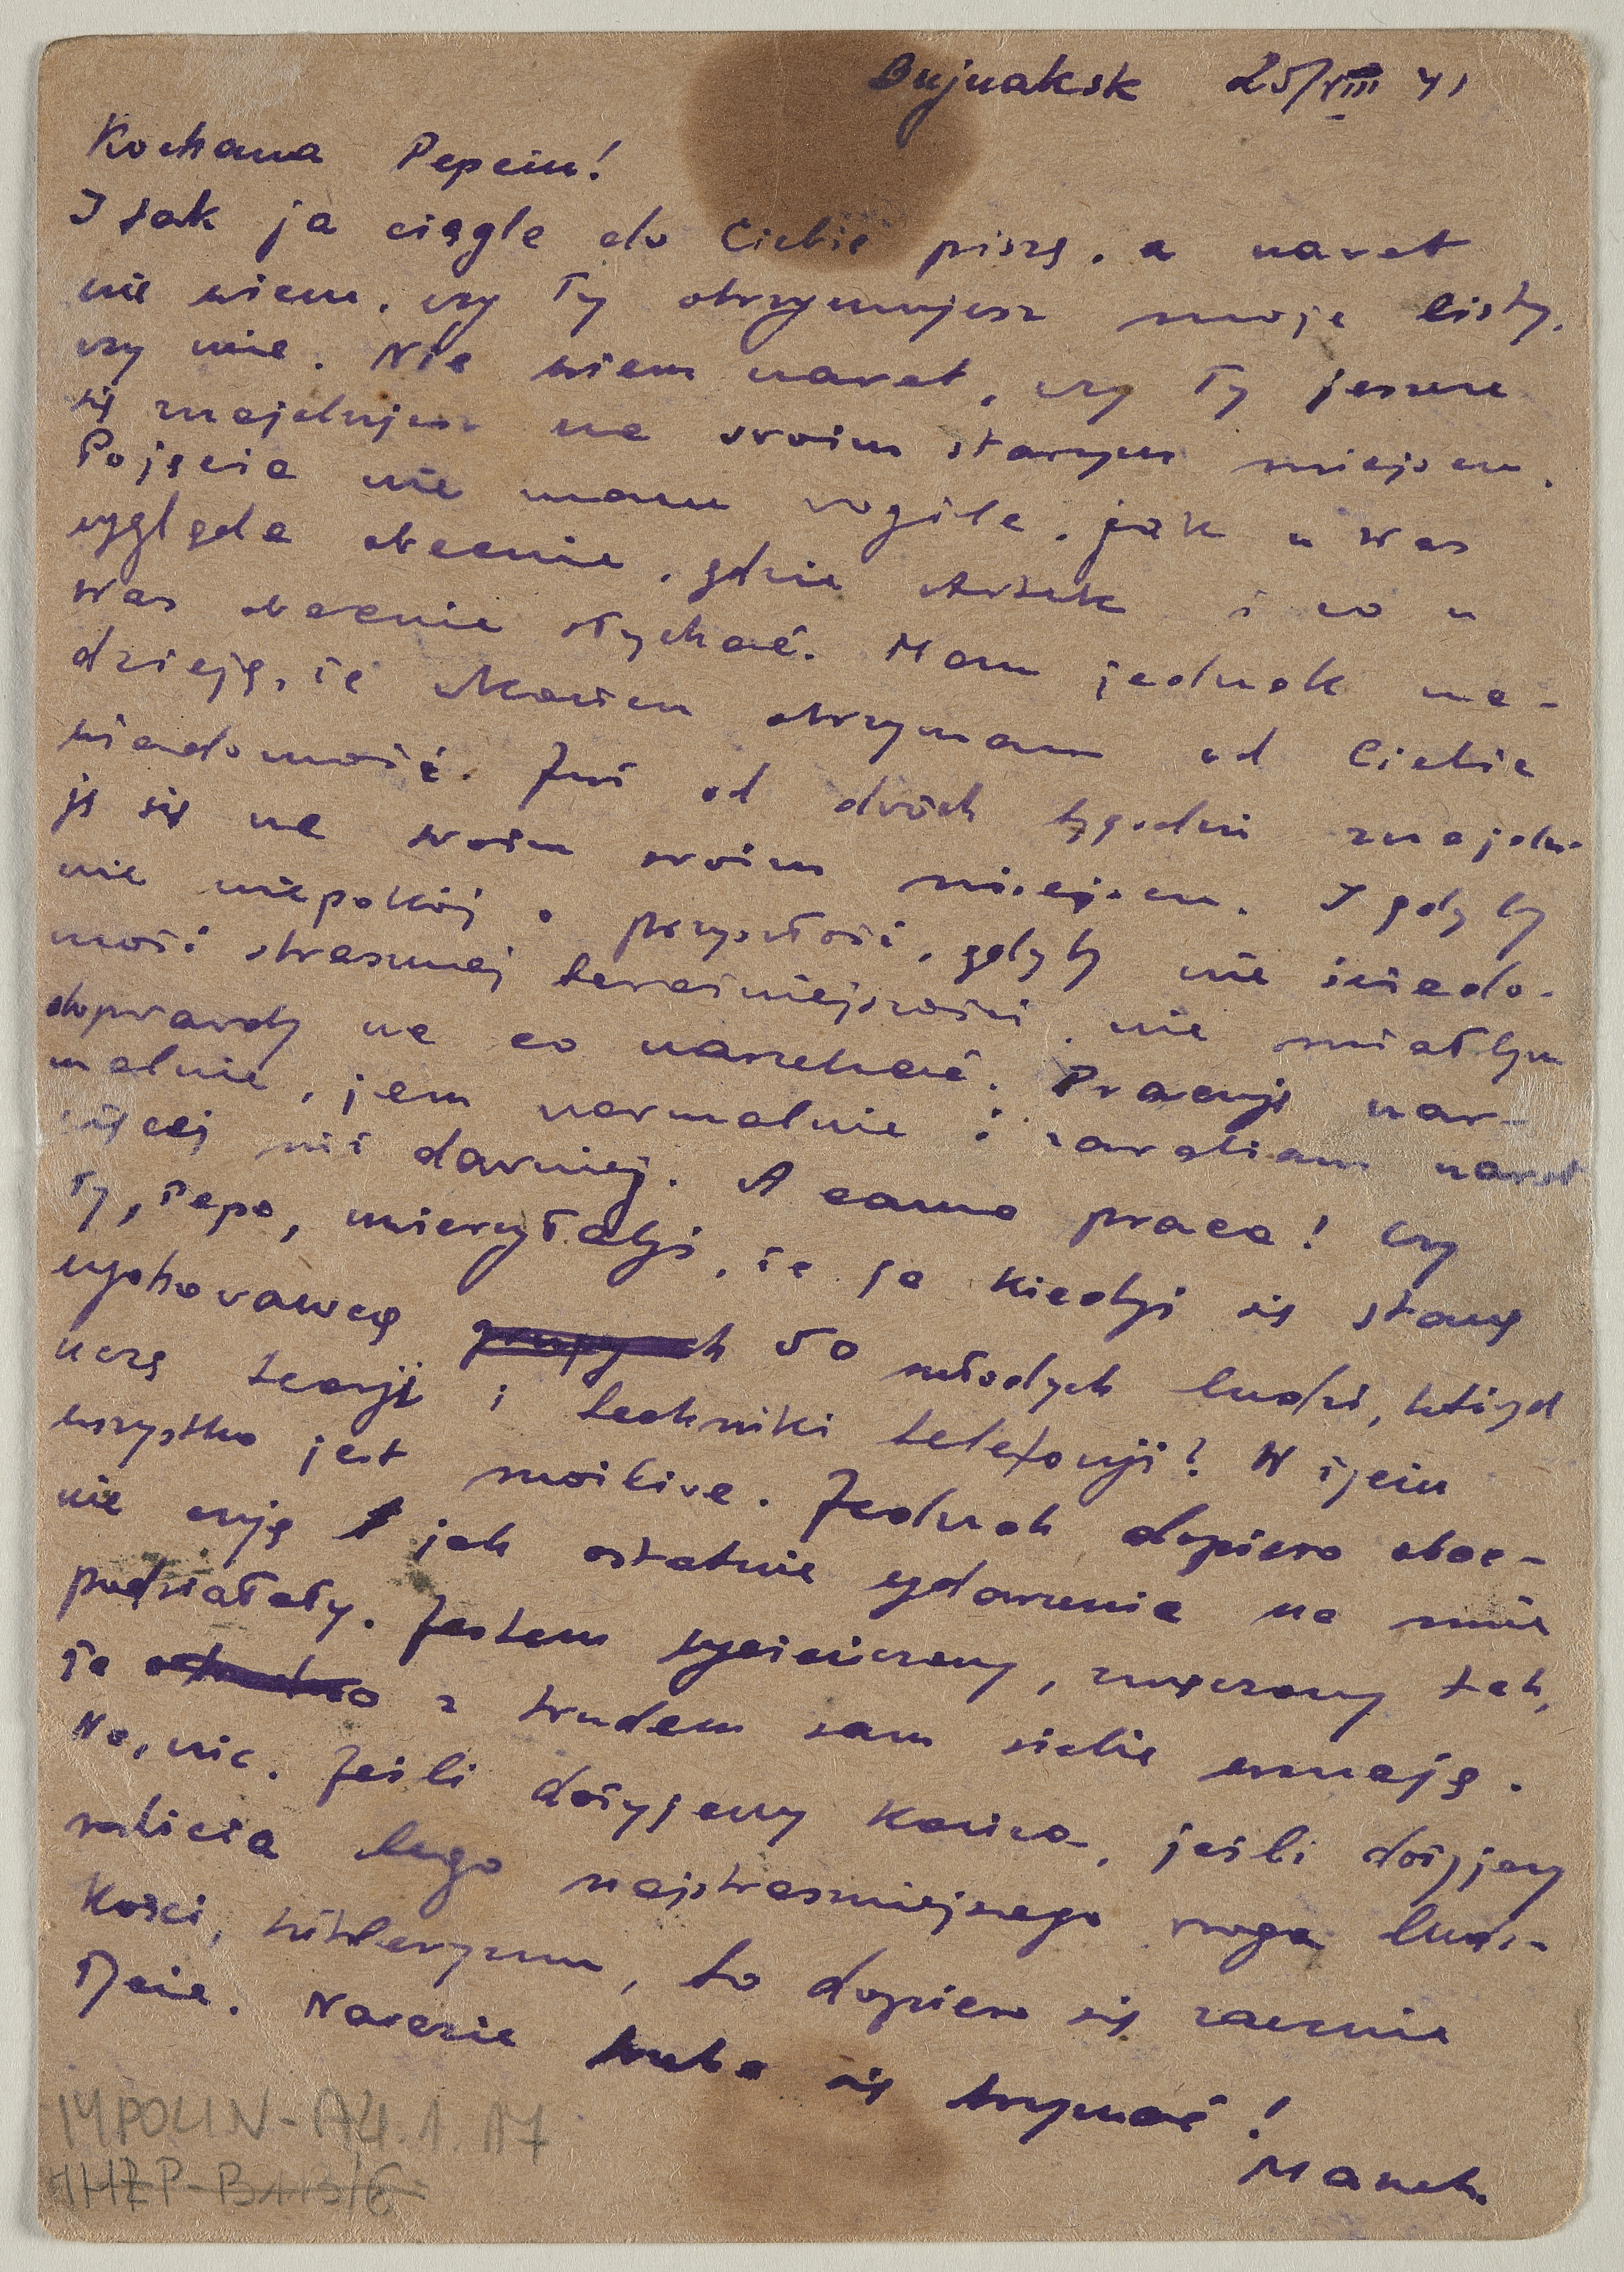 Bujnaksk 25/VIII 41
Kochana Pepciu!
I tak ja ciągle do Ciebie piszę, a nawet
nie wiem, czy Ty otrzymujesz moje listy,
czy nie. Nie wiem nawet, czy Ty jeszcze
się znajdujesz na swoim starym miejscu.
Pojęcia nie mam wogóle, jak u Was
wygląda obecnie, gdzie i co u
Was obecnie słychać. Mam jednak na-
dzieję, że otrzymam od Ciebie
wiadomość. Już od dwóch tygodni znajdu-
ję się na swoim miejscu. I gdyby
nie niepokój o przyszłość, gdyby nie świado-
mość strasznej teraźniejszości, nie miałbym
doprawdy na co narzekać. Pracuję nor-
malnie, jem normalnie i zarabiam nawet
więcej niż dawniej. A sama praca! Czy
Ty, Pepo, uwierzyłabyś, że ja kiedyś się stanę
wychowawcą 50 młodych ludzi, których
uczę teorji i techniki telefonji? W życiu
wszystko jest możliwe. Jednak dopiero obec-
nie czuję jak ostatnie wydarzenia na mnie
podziałały. Jestem wycieńczony, zmęczony tak,
że z trudem sam siebie poznaję.
No, nic. Jeśli dożyjemy końca, jeśli dożyjemy
rozbicia tego najstraszniejszego wroga ludz-
kości, hitleryzmu, to dopiero się zacznie
życie. Narazie trzeba się trzymać!
Manek.
MPOLIN-A4.1.17